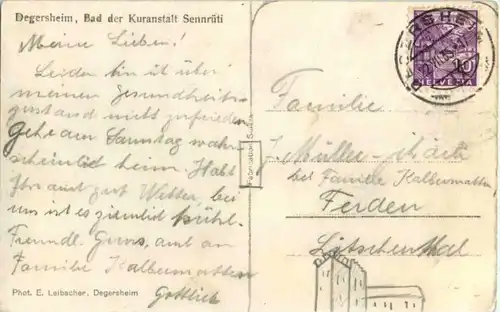 Degersheim, Bad der Kuranstalt Sennrüti
Meine Lieben!
Leider bin ich über
meinen Gesundheits-
zustand nicht zufrieden
Gehe am Samstag wahr-
scheinlich heim. Habt
Ihr auch gut Wetter, bei
uns ist es ziemlich kühl.
Freundl. Gruss, auch an
Familie Kalbermatten
Gottlieb
Phot. E. Leibacher, Degersheim
DEGERSHEIM
10
HELVETIA
Familie
J. Müller-
bei Familie Kalbermatten
Ferden
Lötschenthal